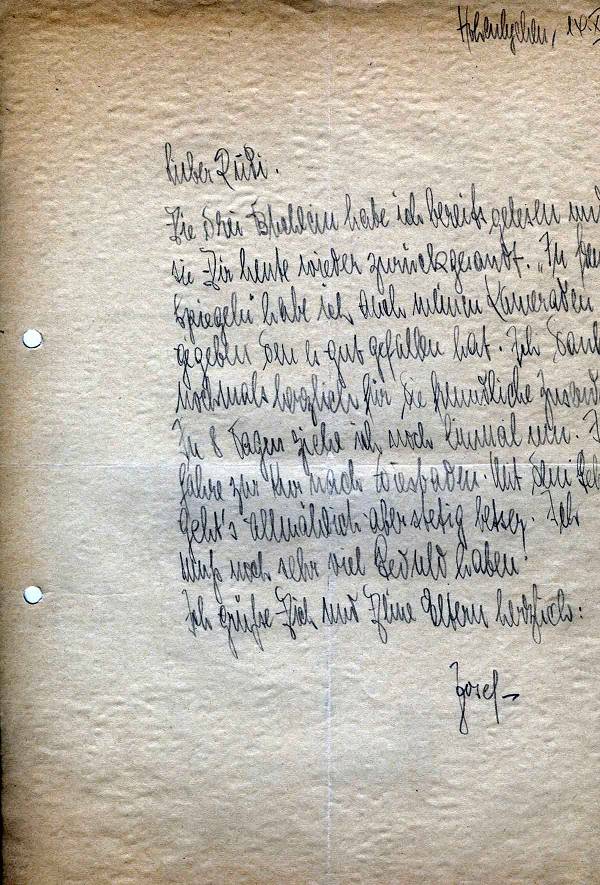 Hohenlychen,
Lieber Rudi.
Die drei habe ich bereits gelesen und
sie Dir heute wieder zurückgesandt. „In
Spiegel" habe ich auch meinen Kameraden
gegeben dem er gut gefallen hat. Ich
nochmals herzlich für die freundliche
In 8 Tagen ziehe ich noch einmal um.
fahre zur Kur nach Wiesbaden. Mit dem
geht's allmählich aber stetig besser. Ich
muß noch sehr viel Geduld haben.
Ich grüße Dich und Deine Eltern herzlich:
Josef